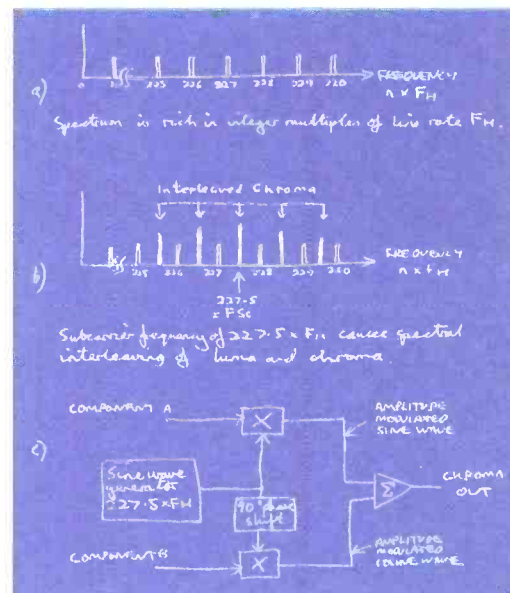 FREQUENCY
n x FH
0 1 225 226 227 228 229 230
a)
Spectrum is rich in integer multiples of line rate FH.
Interleaved Chroma
FREQUENCY
n x FH
225 226 227 228 229 230
b)
227.5
x FSc
Subcarrier frequency of 227.5 x FH causes spectral
interleaving of luma and chroma.
COMPONENT A
X
AMPLITUDE
MODULATED
SINE WAVE
c)
Sine wave
generator
227.5 x FH
90° phase
shift
Σ
CHROMA
OUT
COMPONENT B
X
AMPLITUDE
MODULATED
COSINE WAVE